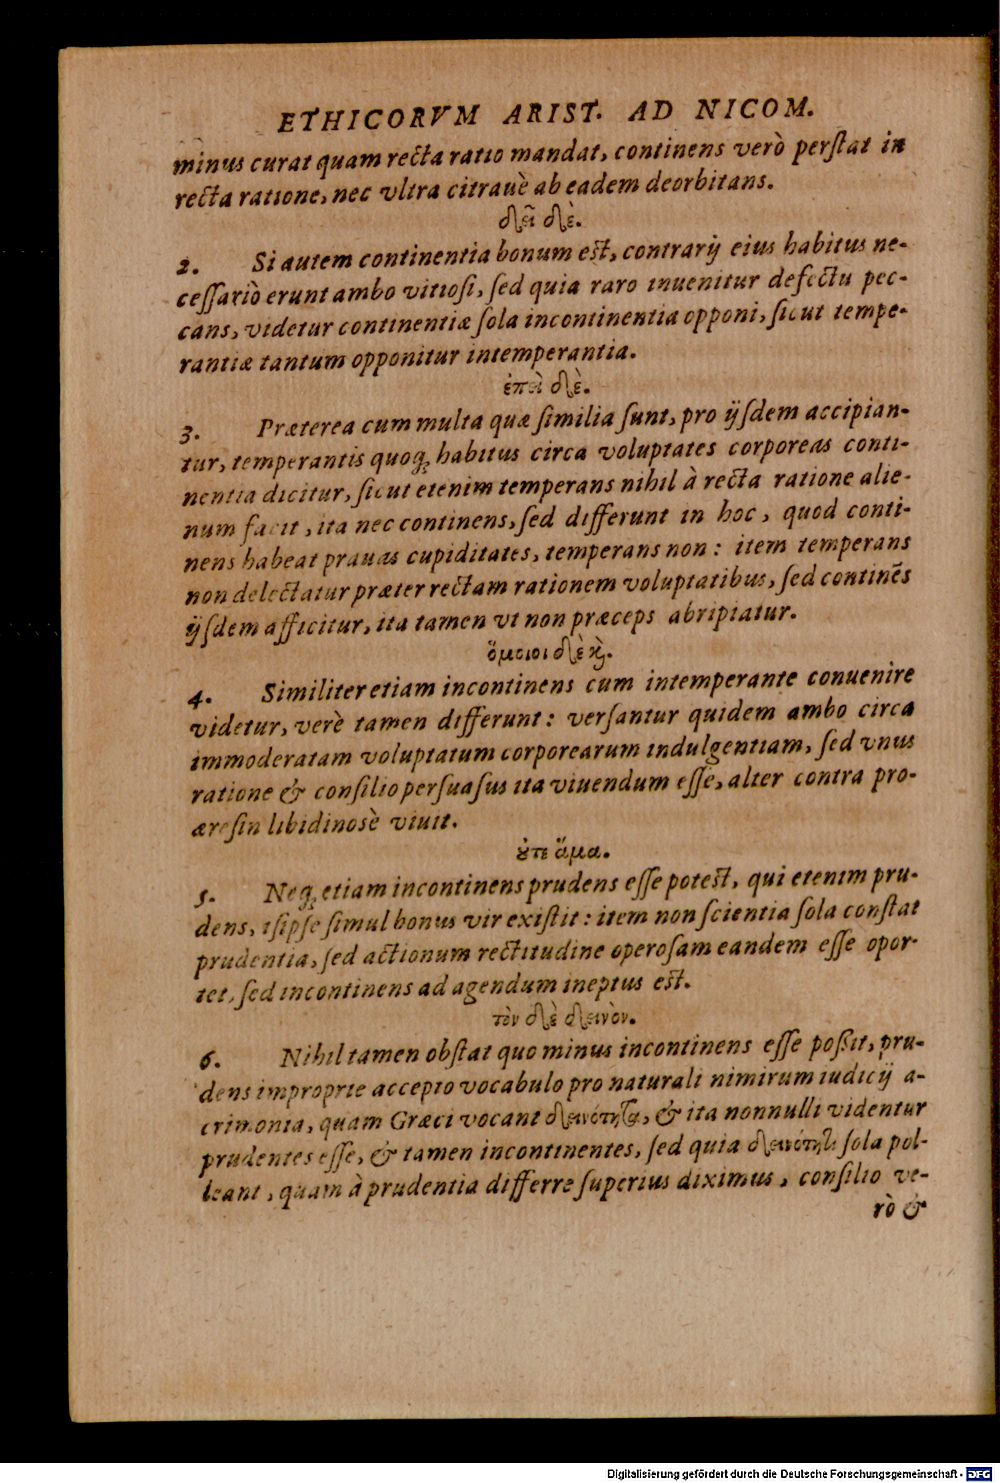 ETHICORVM ARIST. AD NICOM.
minus curat quam recta ratio mandat, continens verò perſtat in
recta ratione, nec vltra citrauè ab eadem deorbitans.
δεῖ δὲ.
2. Si autem continentia bonum eſt, contrarij eius habitus ne-
ceſſariò erunt ambo vitioſi, ſed quia raro inuenitur defectu pec-
cans, videtur continentiæ ſola incontinentia opponi, ſicut tempe-
rantiæ tantum opponitur intemperantia.
ἐπεὶ δὲ.
3. Præterea cum multa quæ ſimilia ſunt, pro ijſdem accipian-
tur, temperantis quoq; habitus circa voluptates corporeas conti-
nentia dicitur, ſicut etenim temperans nihil à recta ratione alie-
num facit, ita nec continens, ſed differunt in hoc, quod conti-
nens habeat prauas cupiditates, temperans non: item temperans
non delectatur præter rectam rationem voluptatibus, ſed continēs
ijſdem afficitur, ita tamen vt non præceps abripiatur.
ὅμοιοι δὲ ϗ̀.
4. Similiter etiam incontinens cum intemperante conuenire
videtur, verè tamen differunt: verſantur quidem ambo circa
immoderatam voluptatum corporearum indulgentiam, ſed vnus
ratione & conſilio perſuaſus ita viuendum eſſe, alter contra pro-
æreſin libidinosè viuit.
ȣ̓τε ἅμα.
5. Neq; etiam incontinens prudens eſſe poteſt, qui etenim pru-
dens, iſipſe ſimul bonus vir exiſtit: item non ſcientia ſola conſtat
prudentia, ſed actionum rectitudine operoſam eandem eſſe opor-
tet, ſed incontinens ad agendum ineptus eſt.
τὸν δὲ δεινὸν.
6. Nihil tamen obſtat quo minus incontinens eſſe poßit, pru-
dens improprie accepto vocabulo pro naturali nimirum iudicij a-
crimonia, quam Græci vocant δεινότητα, & ita nonnulli videntur
prudentes eſſe, & tamen incontinentes, ſed quia δεινότητι ſola pol-
leant, quam à prudentia differre ſuperius diximus, conſilio ve-
rò &
Digitalisierung gefördert durch die Deutsche Forschungsgemeinschaft - DFG